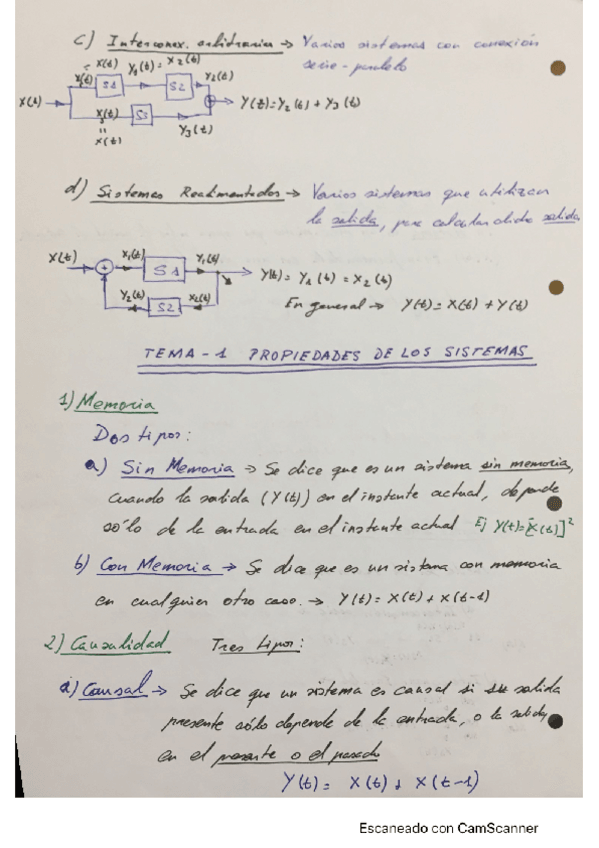 c) Interconex. arbitrarias → Varios sistemas con conexión
serie-paralelo
X(t) Y1(t) = X2(t)
X(t) S1 S2 Y2(t)
X(t) Y(t)=Y2(t) + Y3(t)
X3(t) S3
Y3(t)
"
X(t)
d) Sistemas Realimentados → Varios sistemas que utilizan
la salida, para calcular dicha salida
X(t) X1(t) Y1(t)
+ S1 Y(t) = Y1(t) = X2(t)
Y2(t) S2 X2(t)
En general → Y(t) = X(t) + Y(t)
TEMA-1 PROPIEDADES DE LOS SISTEMAS
1) Memoria
Dos tipos:
a) Sin Memoria → Se dice que es un sistema sin memoria,
cuando la salida (Y(t)) en el instante actual, depende
sólo de la entrada en el instante actual Ej Y(t)=[X(t)]²
b) Con Memoria → Se dice que es un sistema con memoria
en cualquier otro caso. → Y(t) = X(t) + X(t-1)
2) Causalidad Tres tipos:
a) Causal → Se dice que un sistema es causal si su salida
presente sólo depende de la entrada, o la salida
en el presente o el pasado
Y(t) = X(t) + X(t-1)
Escaneado con CamScanner